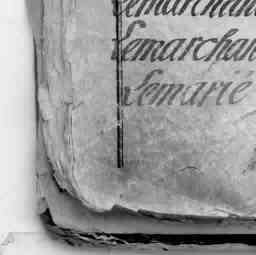 Lemarchan
Lemarchan
Lemarié